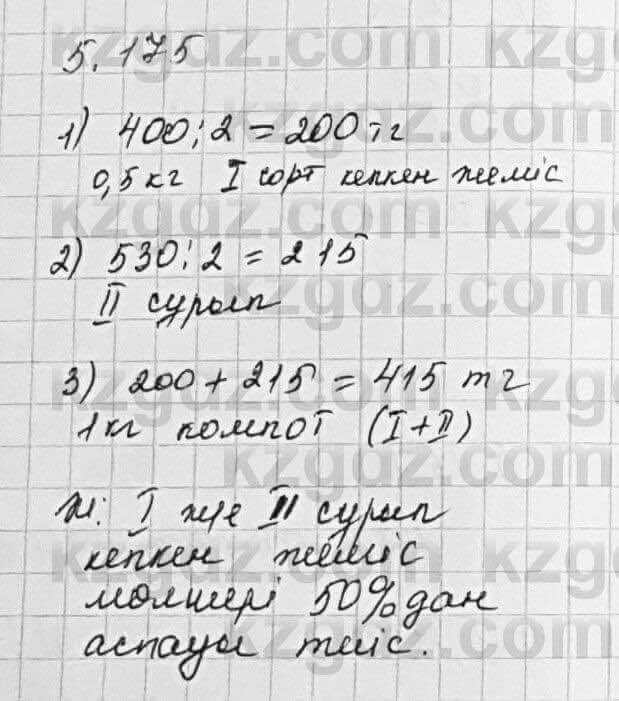 5.175
1) 400:2=200тг
0,5кг I сорт кепкен жеміс
2) 530:2=215
II сурып
3) 200+215=415 тг
1кг компот (I+II)
Ж: I ж/е II сурып
кепкен жеміс
мөлшері 50%дан
аспауы тиіс.
kzgdz.com